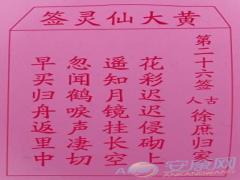 黄大仙灵签
第二十六签
古人
徐庶归家
花彩迟迟侵砌上
遥知月镜挂长空
忽闻鹤唳声凄切
早买归舟返里中
安康网